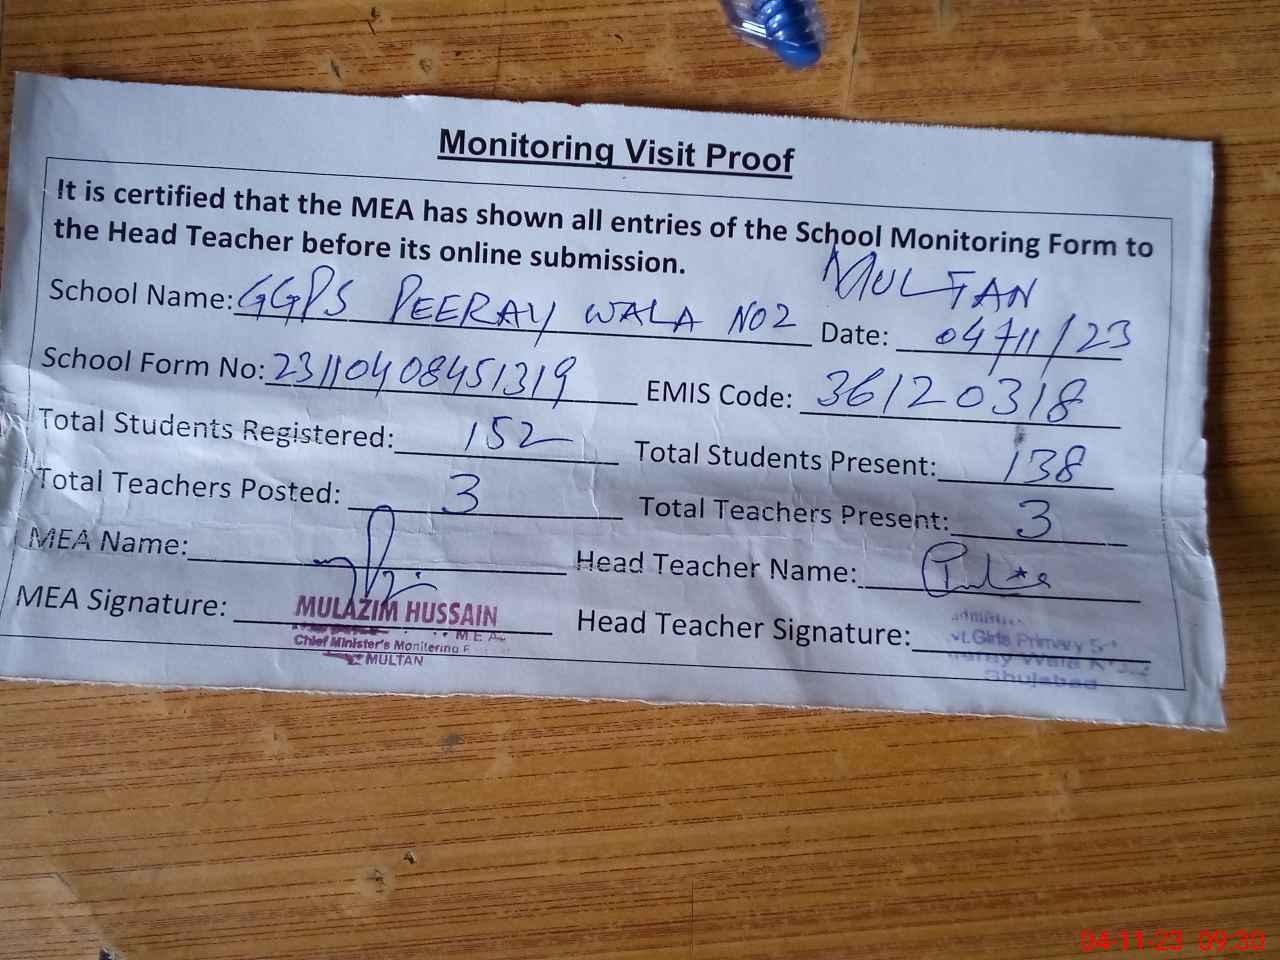 Monitoring Visit Proof
It is certified that the MEA has shown all entries of the School Monitoring Form to
the Head Teacher before its online submission.
MULTAN
School Name: GGPS PEERAY WALA NO2 Date: 04/11/23
School Form No: 23110408451319 EMIS Code: 36120318
Total Students Registered: 152 Total Students Present: 138
Total Teachers Posted: 3 Total Teachers Present: 3
MEA Name: Head Teacher Name:
MEA Signature: Head Teacher Signature:
MULAZIM HUSSAIN
M.E.A
Chief Minister's Monitoring
MULTAN
Girls Primary
Wala
Shujabad
04-11-23 09:30